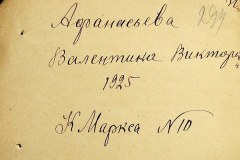 Афанасьева 299
Валентина Виктор
1925
К Маркса N 10